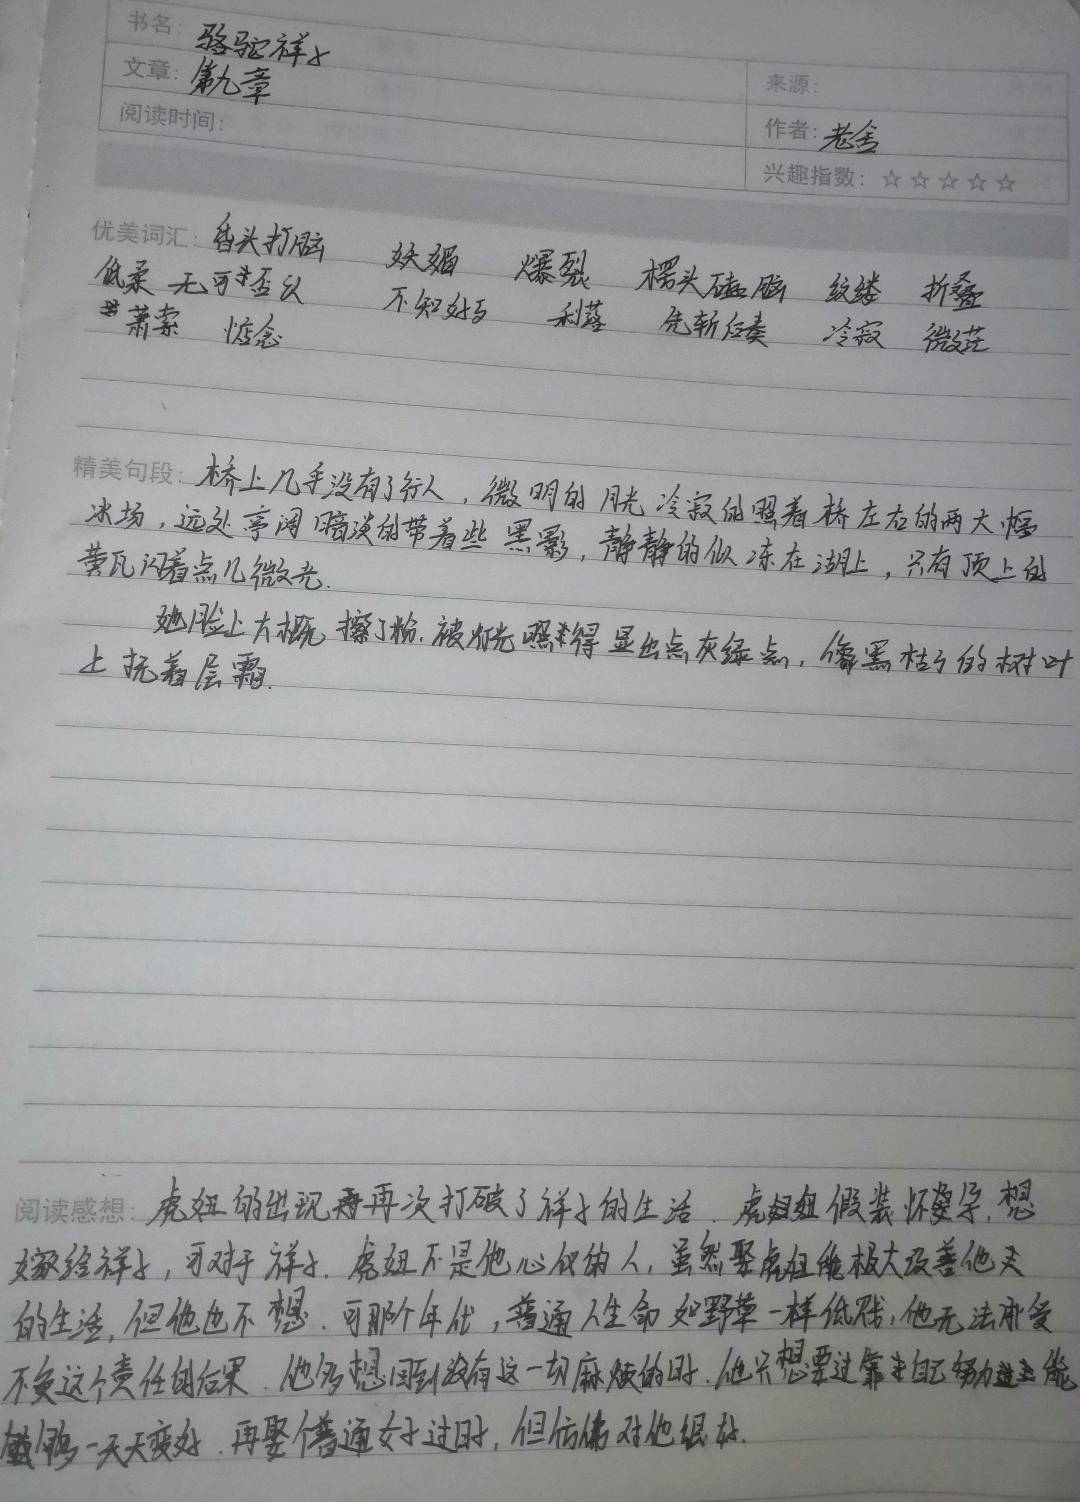 书名: 骆驼祥子
文章: 第九章
来源:
阅读时间:
作者: 老舍
兴趣指数: ☆☆☆☆☆
优美词汇: 昏头打脑 妖媚 爆裂 楞头磕脑 纹缕 折叠
低柔 无可否认 不知好歹 利落 先斩后奏 冷寂 微茫
萧索 惦念
精美句段: 桥上几乎没有了行人，微明的月光冷寂的照着桥左右的两大幅
冰场，远处亭阁暗淡的带着些黑影，静静的似冻在湖上，只有顶上的
黄瓦闪着点儿微光.
她脸上大概擦了粉.被灯光照得显出点灰绿点，像黑枯了的树叶
上挂着层霜.
阅读感想: 虎妞的出现再次打破了祥子的生活.虎妞假装怀孕,想
嫁给祥子，可对于祥子.虎妞不是他心仪的人,虽然娶虎妞能极大改善他
的生活,但他也不想.可那个年代，普通人生命如野草一样低贱,他无法承受
不负这个责任的后果.他多想回到没有这一切麻烦的时.他只想要过靠自己努力能
够一天天变好.再娶个普通女子过日子,但仿佛对他很